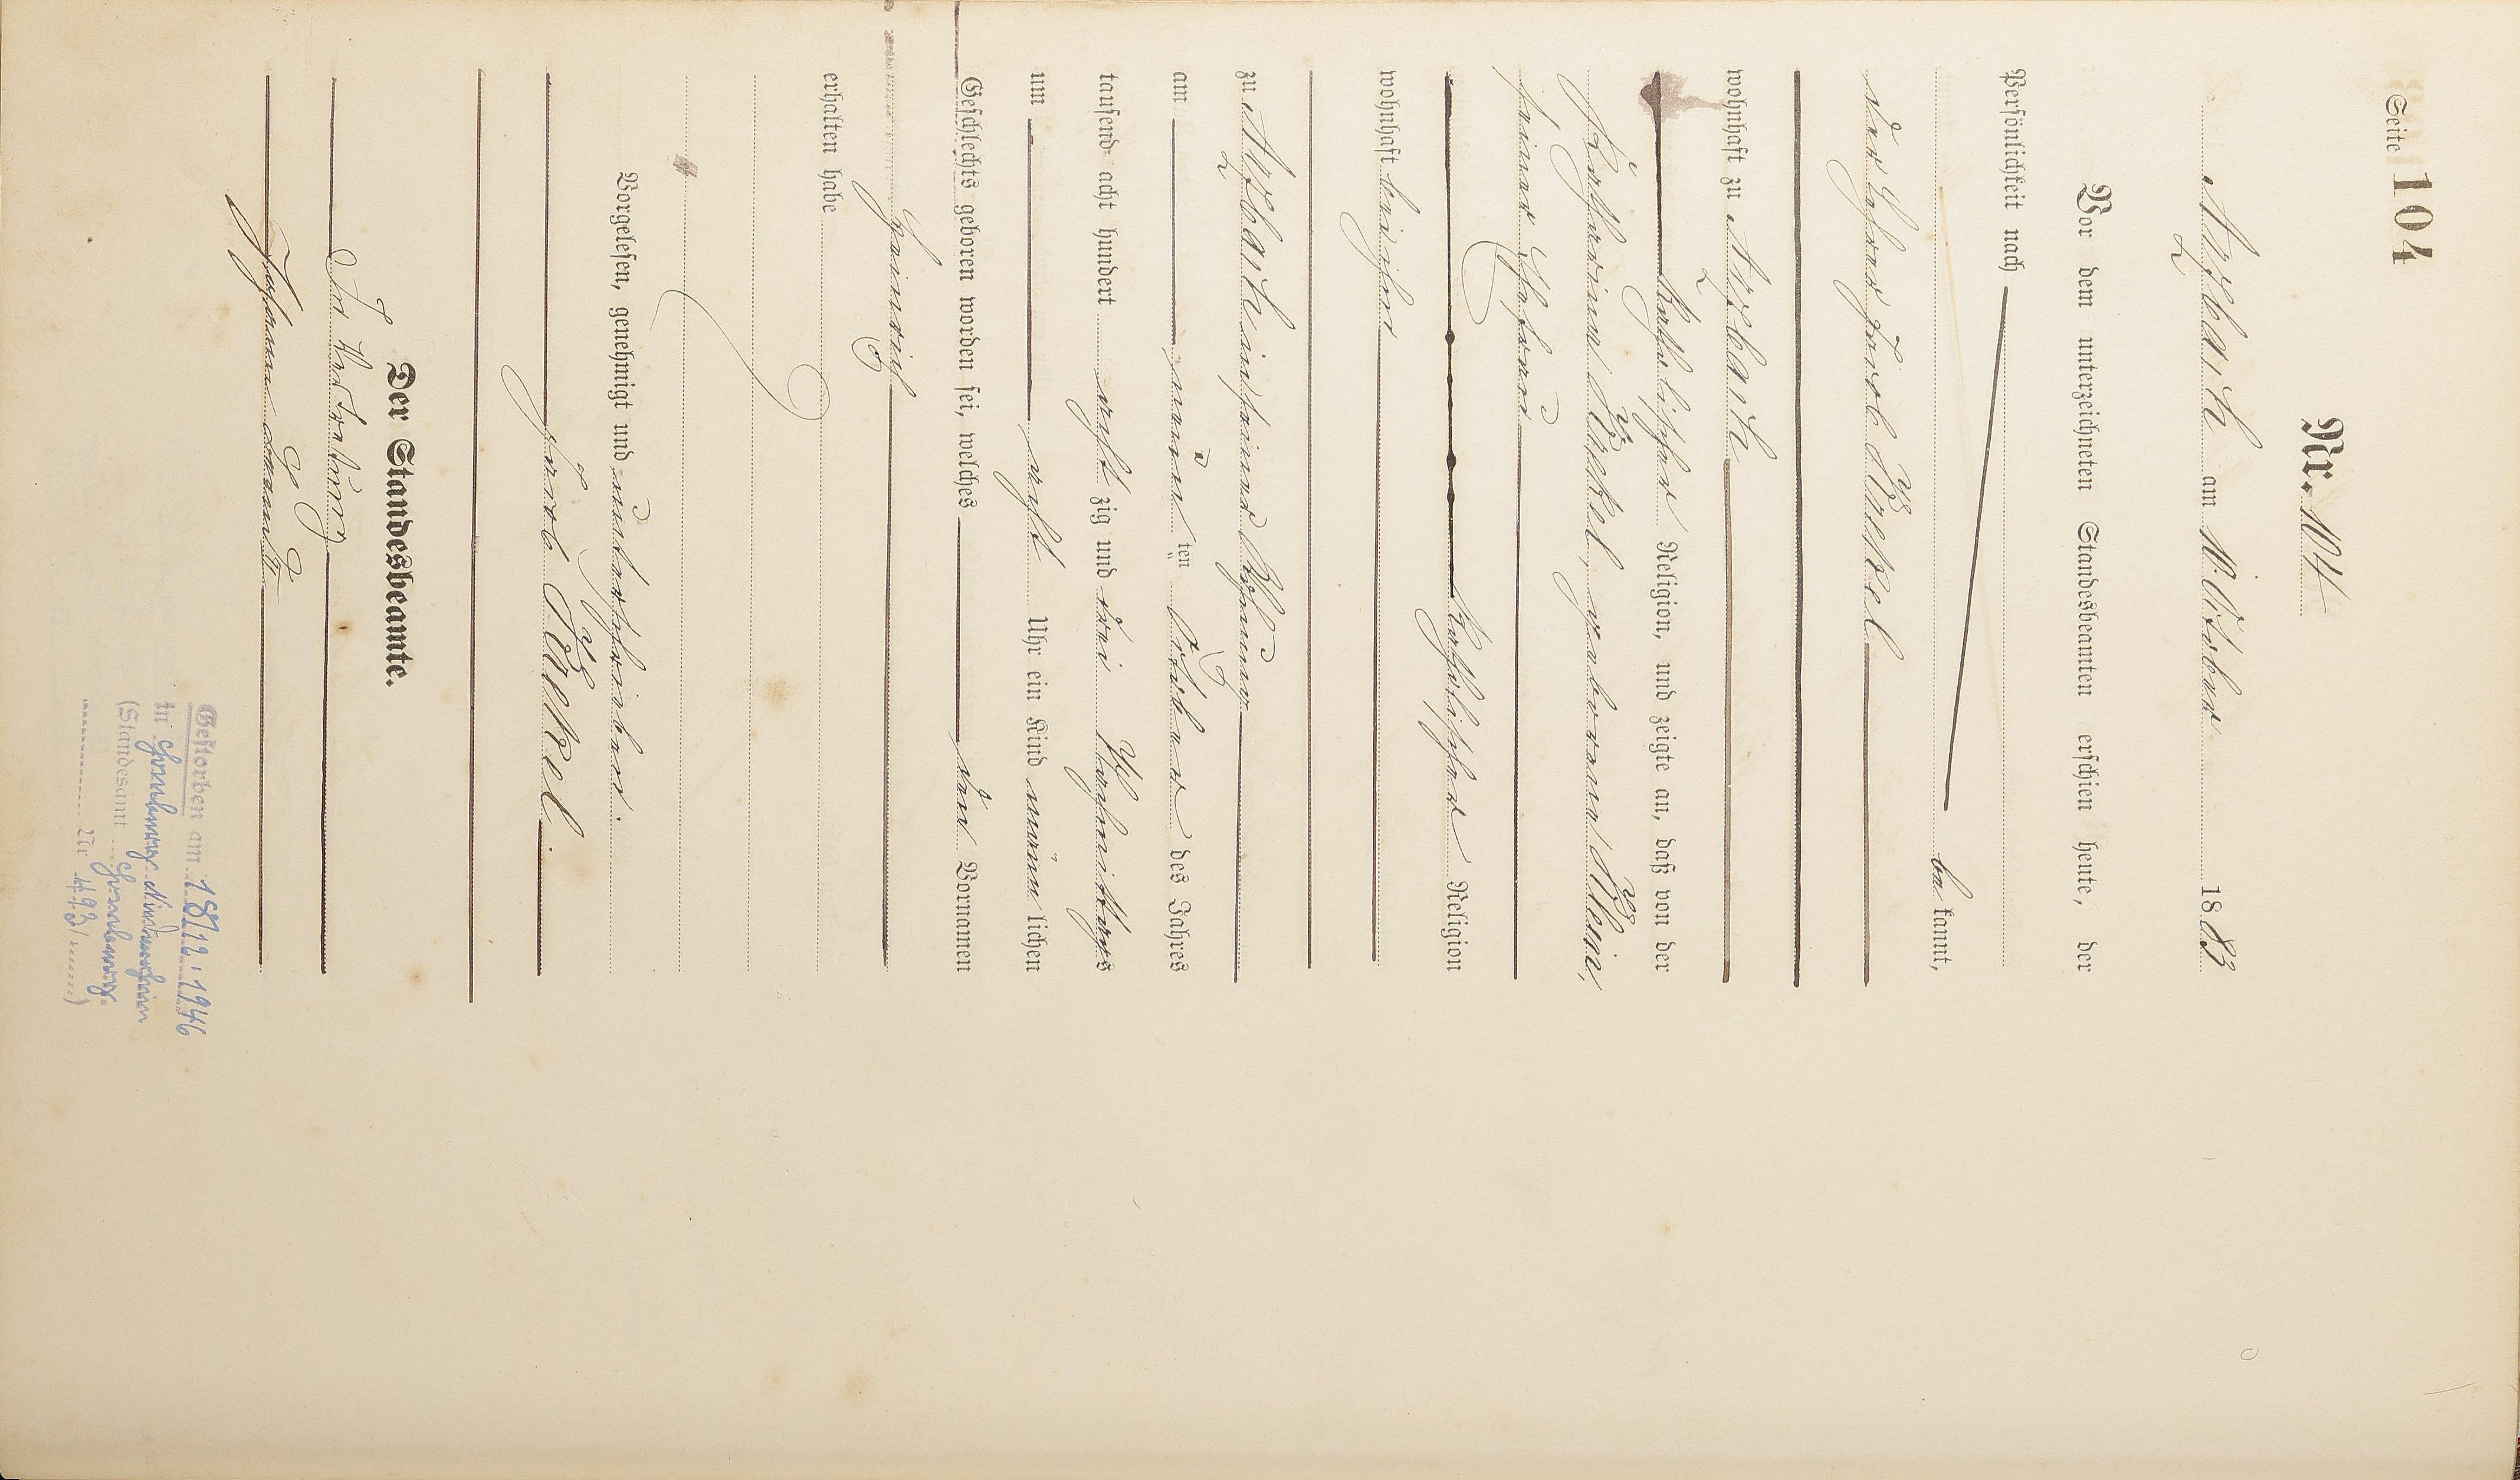 Seite 104
Nr. 104
Arzbach am 10. October 1883
Vor dem unterzeichneten Standesbeamten erschien heute, der
Persönlichkeit nach
bekannt,
der Lehrer Jacob
wohnhaft zu Arzbach
katholischer Religion, und zeigte an, daß von der
Katharina geborene Klein,
seiner Ehefrau
katholischer Religion
wohnhaft bei ihm
zu Arzbach in seiner Wohnung
am neunten October des Jahres
tausend acht hundert acht zig und drei Vormittags
um acht Uhr ein Kind männlichen
Geschlechts geboren worden sei, welches den Vornamen
Heinrich
erhalten habe
Vorgelesen, genehmigt und unterschrieben.
Jacob
Der Standesbeamte.
In Vertretung
Johann
Gestorben am 18.12.1946
in
(Standesamt
Nr. 493/......)